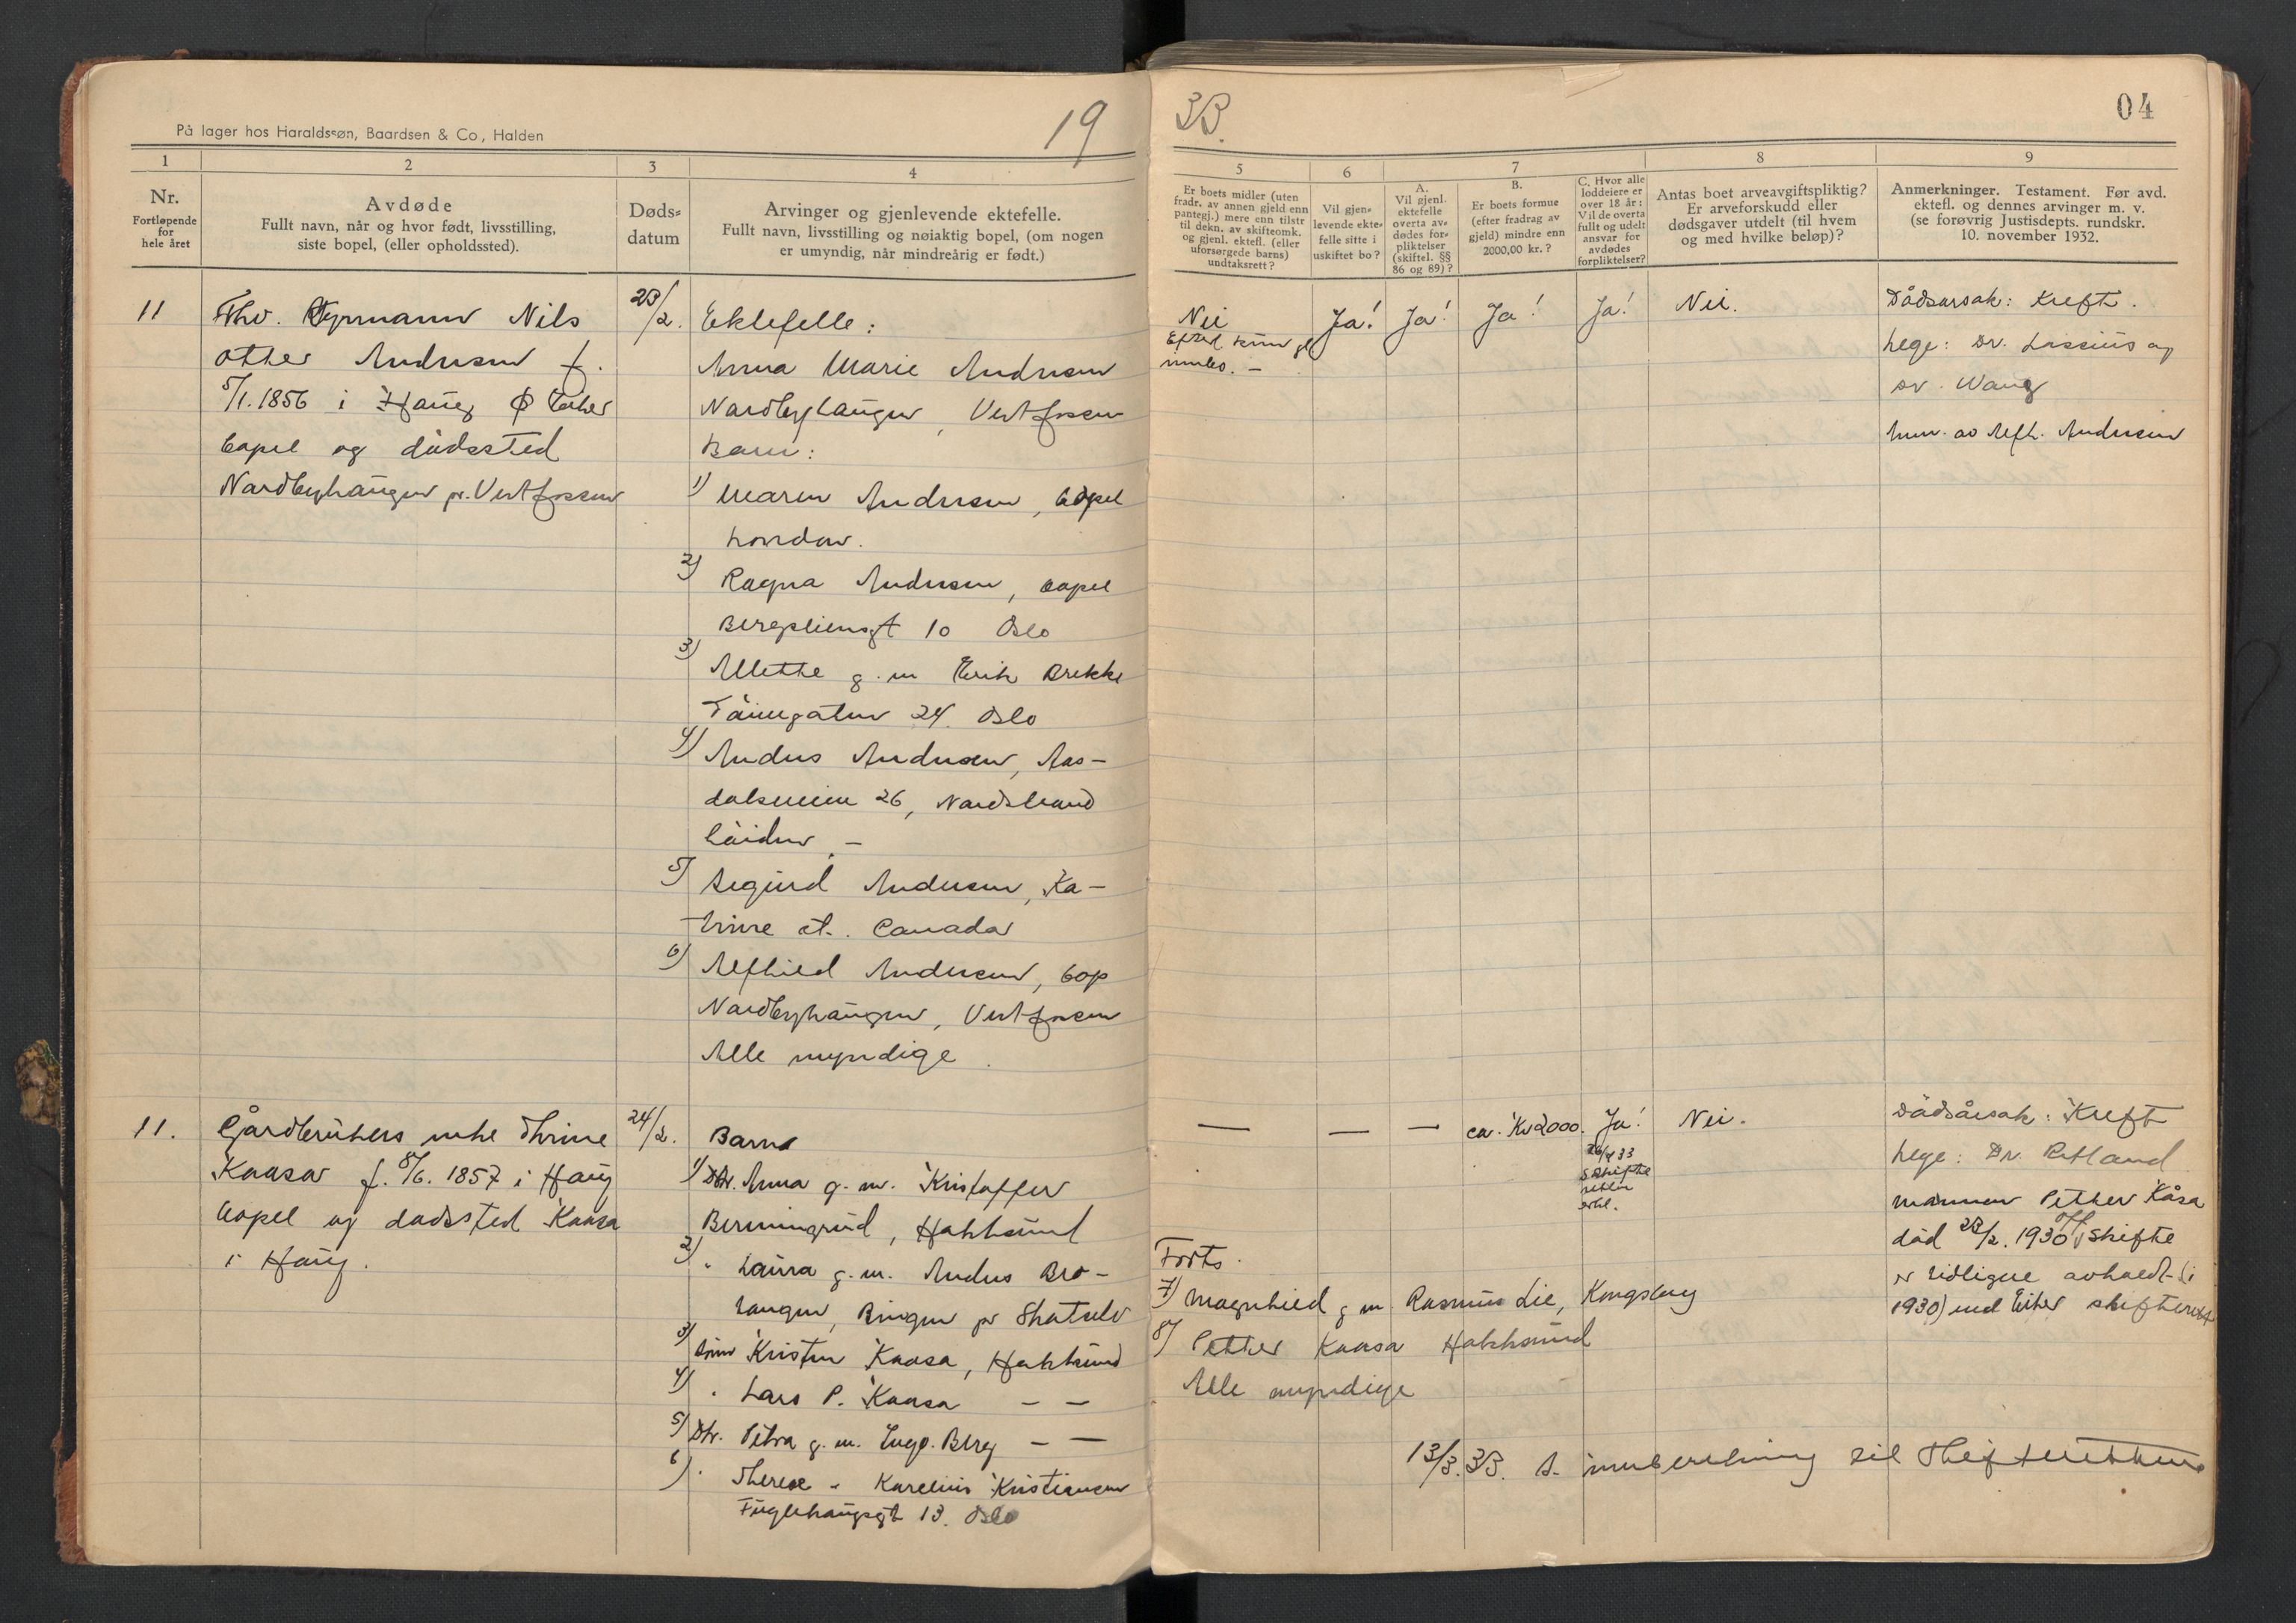 På lager hos Haraldssøn, Baardsen & Co, Halden
19
1
2
3
4
Nr.
Fortløpende
for
hele året
Avdøde
Fullt navn, når og hvor født, livsstilling,
siste bopel, (eller opholdssted).
Døds-
datum
Arvinger og gjenlevende ektefelle.
Fullt navn, livsstilling og nøiaktig bopel, (om nogen
er umyndig, når mindreårig er født.)
11
Fhv. Nils
Andersen f.
5/1. 1856 i Haug Ø Eiker
bopel og dødssted
Nordbyhaugen pr. Vestfossen
23/2.
Ektefelle:
Anna Marie Andersen
Nordbyhaugen, Vestfossen
Barn:
1) Maren Andersen, bopel
London.
2) Ragna Andersen, bopel
10 Oslo
3) Alette g. m Erik Brekke
24. Oslo
4) Anders Andersen, Aas-
dalsveien 26, Nordstrand
5) Sigurd Andersen, Ka-
trine st. Canada
6) Alfhild Andersen, bop
Nordbyhaugen, Vestfossen
Alle myndige
11.
Gårdbrukers enke Thrine
Kaasa f. 8/6. 1857 i Haug
bopel og dødssted Kaasa
i Haug.
24/2.
Barn
1) Dtr. Anna g. m. Kristoffer
Hokksund
2) " Laura g. m. Anders Bro-
haugen, Bingen pr Skotselv
3) Sønn Kristen Kaasa, Hokksund
4) " Lars P. Kaasa — —
5) Dtr. Petra g. m. Berg — —
6) " Therese " Karelius Kristiansen
Fuglehauggt 13. Oslo
33.
04
5
6
7
8
9
Er boets midler (uten
fradr. av annen gjeld enn
pantegj.) mere enn tilstr
til dekn. av skifteomk.
og gjenl. ektefl. (eller
uforsørgede barns)
undtaksrett?
Vil gjen-
levende ekte-
felle sitte i
uskiftet bo?
A.
Vil gjenl.
ektefelle
overta av-
dødes for-
pliktelser
(skiftel. §§
86 og 89)?
B.
Er boets formue
(efter fradrag av
gjeld) mindre enn
2000,00 kr.?
C. Hvor alle
loddeiere er
over 18 år:
Vil de overta
fullt og udelt
ansvar for
avdødes
forpliktelser?
Antas boet arveavgiftspliktig?
Er arveforskudd eller
dødsgaver utdelt (til hvem
og med hvilke beløp)?
Anmerkninger. Testament. Før avd.
ektefl. og dennes arvinger m. v.
(se forøvrig Justisdepts. rundskr.
10. november 1932.
Nei
innbo. —
Ja!
Ja!
Ja!
Ja!
Nei.
Dødsårsak: Kreft.
Lege: Dr. Lassius og
Dr. Wang
Anm. av Alfh. Andersen
—
—
—
ca. Kr 2000.
Ja!
Skifte
erkl.
Nei.
Dødsårsak: Kreft
Lege: Dr. Refland
mannen Petter Kåsa
død 23/2. 1930 Skifte
er tidligere avholdt (i
1930) ved Eiker skifterett
Forts.
7) Magnhild g m. Rasmus Lie, Kongsberg
8) Petter Kaasa Hokksund
Alle myndige
13/3. 33. s. innberetning til Skifteretten